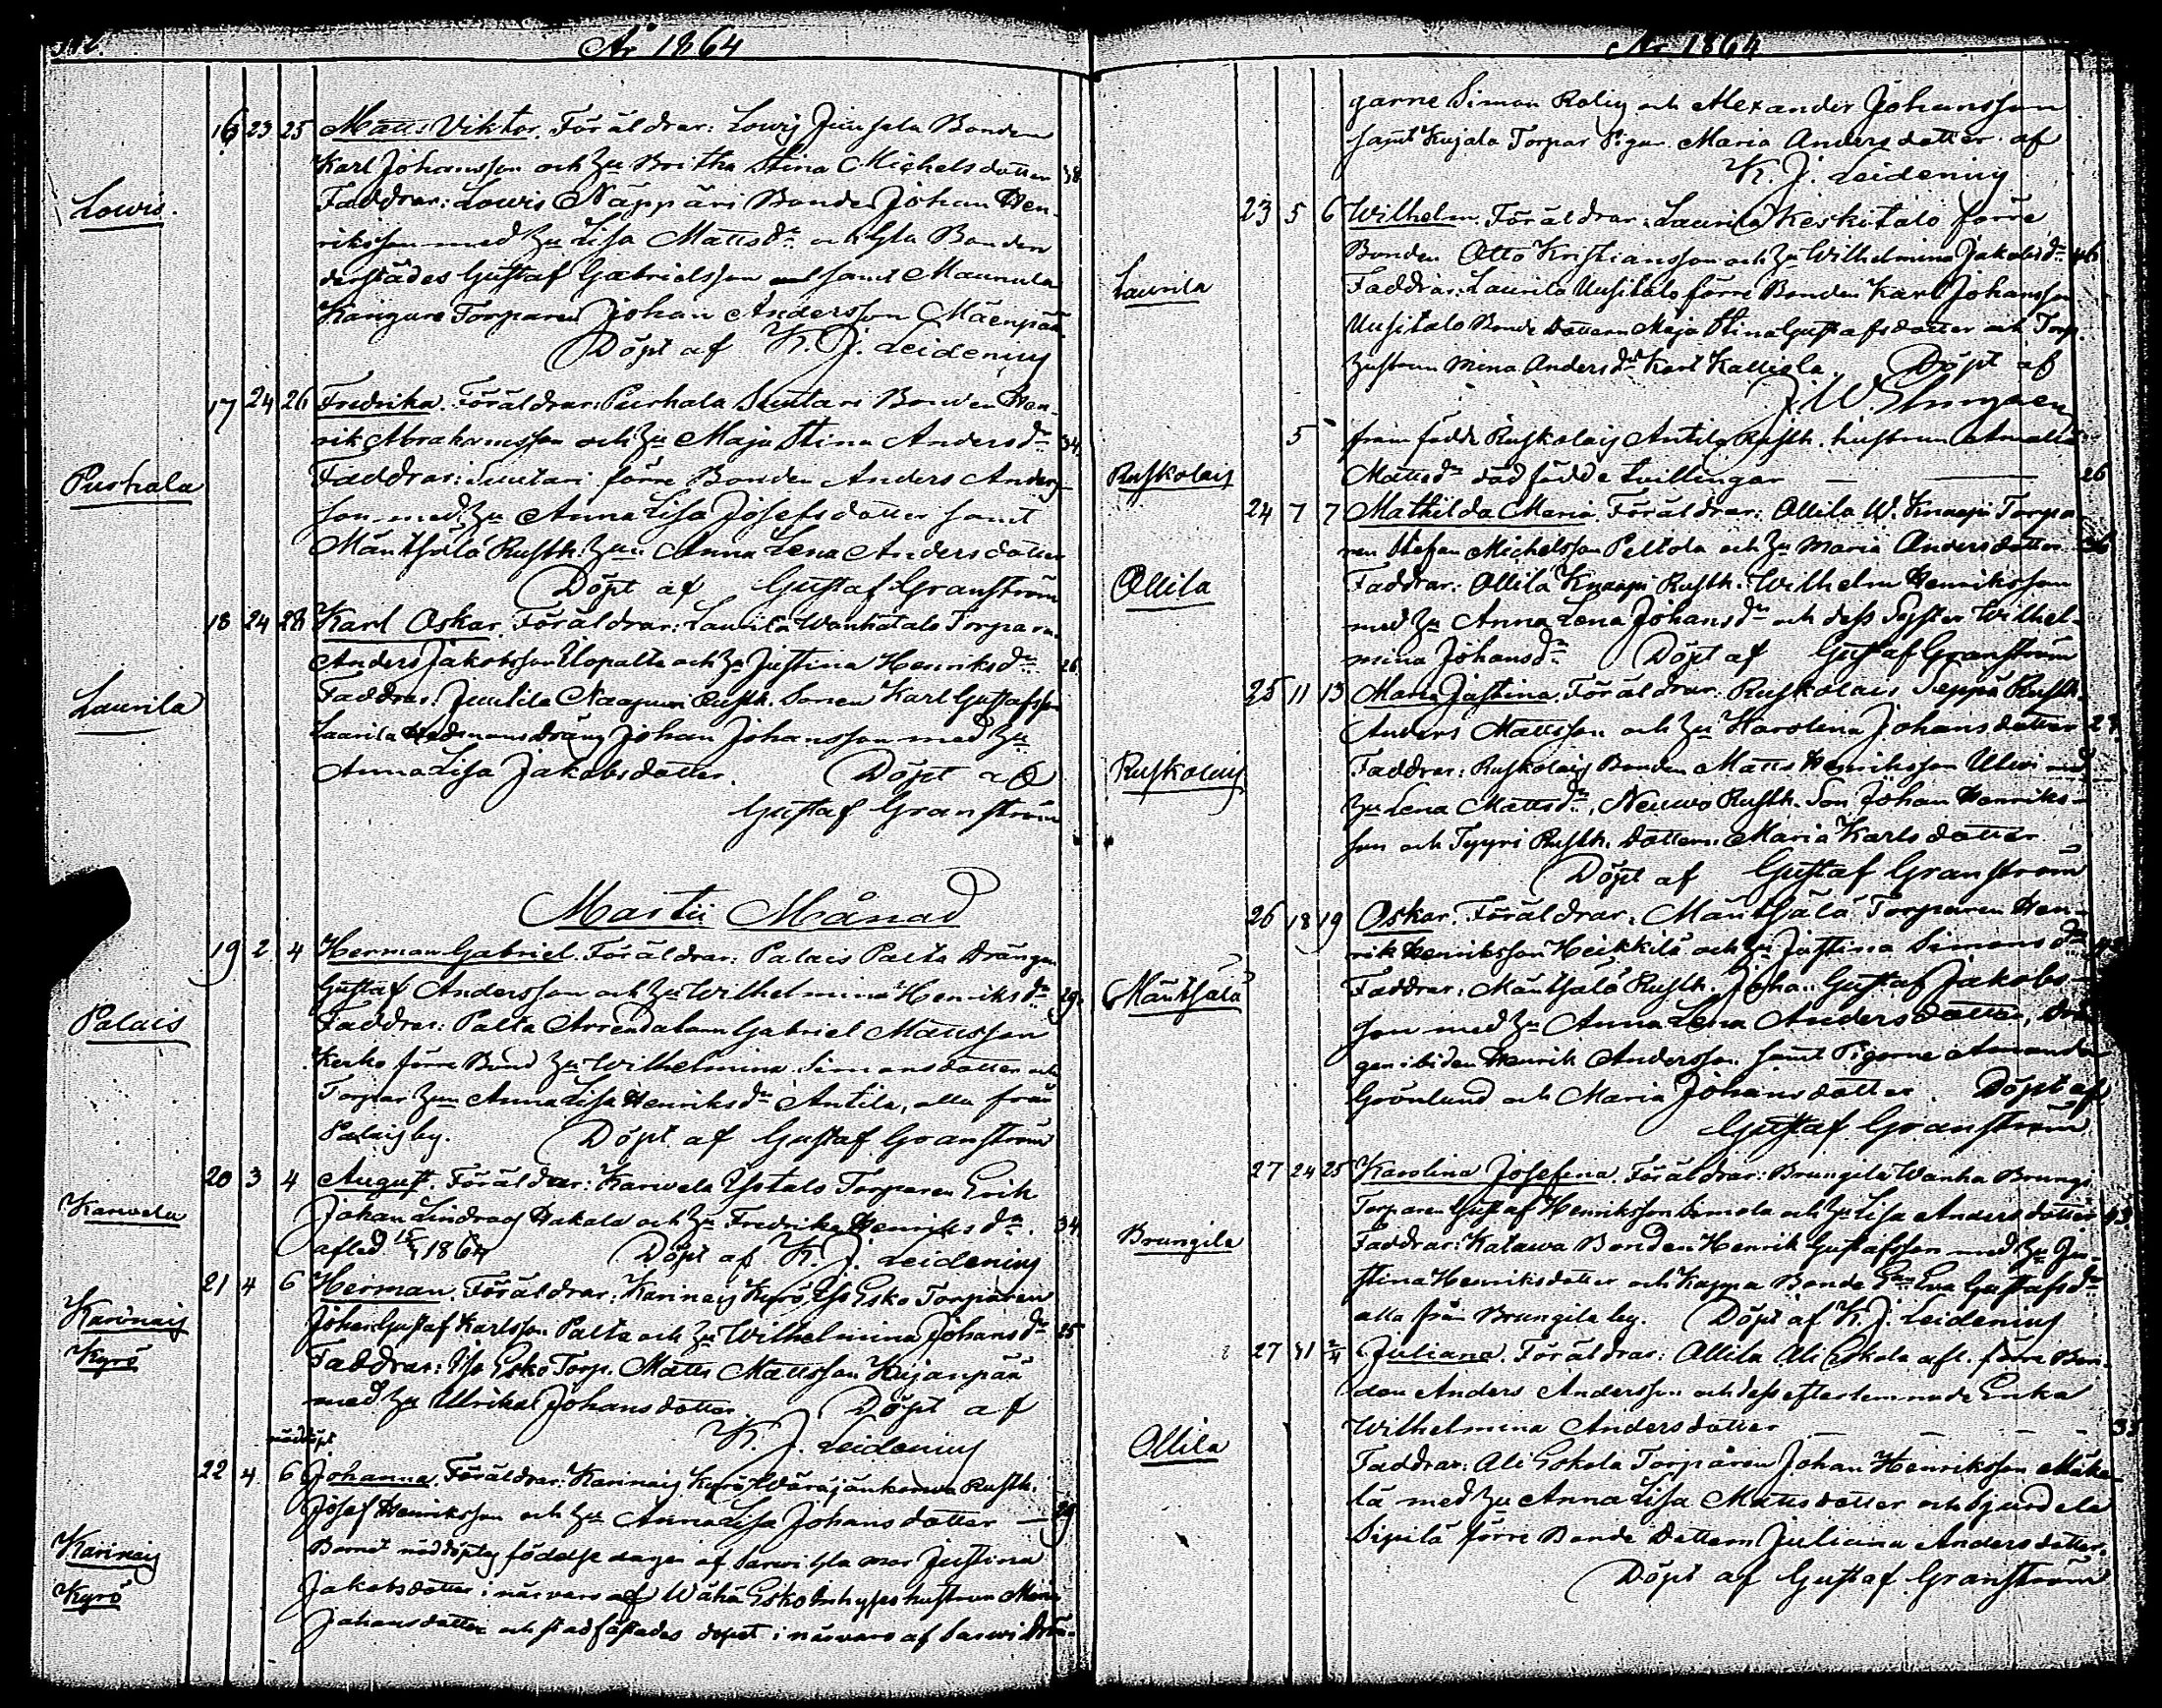 År 1864
16 23 25 Matts Viktor. Föräldrar: Lowis Junsala Bonden
Karl Johansson och Hu Britha Stina Michelsdotter 38
Lowis.
Faddrar: Lowis Näppäri Bonden Johan Hen-
riksson med Hu Lisa Mattsdr och Bonden
derstädes Gustaf Gabrielsson samt Maunula
Kangare Torparen Johan Andersson Mäenpää
Döpt af K. J. Leidenius
17 24 26 Fredrika. Föräldrar: Purhala Suutari Bonden Hen-
rik Abrahamsson och Hu Maja Stina Andersdr 34
Purhala
Faddrar: Suutari förre Bonden Anders Anders-
son med Hu Anna Lisa Josefsdotter samt
Mäntsälä Rusth. Hun Anna Lena Andersdotter
Döpt af Gustaf Granström
18 24 28 Karl Oskar. Föräldrar: Laurila Wanhatalo Torparen
Anders Jakobsson Ylopalta och Hu Justina Henriksdr 26
Laurila
Faddrar: Juutila Naapuri Rusth. Sonen Karl Gustafsson
Laurila Dräng Johan Johansson med Hu
Anna Lisa Jakobsdotter. Döpt af
Gustaf Granström
Martii Månad
19 2 4 Herman Gabriel. Föräldrar: Palais Palta Drängen
Gustaf Andersson och Hu Wilhelmina Henriksdr 29
Palais
Faddrar: Palta Arrendatorn Gabriel Mattsson
Kerko förre Bond Hu Wilhelmina Simonsdotter och
Torpar Hun Anna Lisa Henriksdr Antila, alla från
Palais by. Döpt af Gustaf Granström
20 3 4 August. Föräldrar: Karwela Ystalo Torparen Erik
Karwela
Johan Lindroos Hakala och Hu Fredrika Henriksdr. 34
afled 15/ 1864 Döpt af K. J. Leidenius
21 4 6 Herman. Föräldrar: Karinais Kyrö, Iso Esko Torparen
Karinais
Johan Gustaf Karlsson Palta och Hu Wilhelmina Johansdr 25
Kyrö
Faddrar: Iso Esko Torp. Matts Mattsson Kujanpää
med Hu Ulrika Johansdotter. Döpt af
K. J. Leidenius
nöddöpt
22 4 6 Johanna. Föräldrar: Karinais Kyrö Wäräjänkorwa Rusth.
Josef Henriksson och Hu Anna Lisa Johansdotter — 29
Karinais
Barnet nöddöptes födelsedagen af Sarwi mor Justina
Kyrö
Jakobsdotter i närvaro af Wähä Esko Inhyses hustrun Maria
Johansdotter och stadfästades dopet i närvaro af Sarwi Drän-
År 1864
garne Simon Rolig och Alexander Johansson
samt Kujala Torpar Pigan Maria Andersdotter af
K. J. Leidenius
23 5 6 Wilhelm. Föräldrar: Laurila Keskitalo förre
Bonden Otto Kristiansson och Hu Wilhelmina Jakobsdr 46
Laurila
Faddrar: Laurila Uusitalo förre Bonden Karl Johansson
Uusitalo Bonde Dottern Maja Stina Gustafsdotter och Torp.
hustrun Mina Andersdr Karl Kalliola. Döpt af
5 fram födde Ruskolais Antila Rusth. hustrun Amalia
Ruskolais
Mattsdr död födde tvillingar — 26
24 7 7 Mathilda Maria. Föräldrar: Ollila W. Knaapi Torpa-
ren Stefan Michelsson Peltola och Hu Maria Andersdotter 36
Ollila
Faddrar: Ollila Knaapi Rusth. Wilhelm Henriksson
med Hu Anna Lena Johansdr och dess Syster Wilhel-
mina Johansdr. Döpt af Gustaf Granström
25 11 13 Maria Justina. Föräldrar: Ruskolais Seppä Rusth.
Anders Mattsson och Hu Karolina Johansdotter 27
Ruskolais
Faddrar: Ruskolais Bonden Matts Henriksson Ulwi med
Hu Lena Mattsdr, Neuwo Rusth. Son Johan Henriks-
son och Tyyri Rusth. dottern Maria Karlsdotter
Döpt af Gustaf Granström
26 18 19 Oskar. Föräldrar: Mäntsälä Torparen Hen-
rik Henriksson Heikkilä och Hu Justina Simonsdr
Mäntsälä
Faddrar: Mäntsälä Rusth. Johan Gustaf Jakobs-
son med Hu Anna Lena Andersdotter, Drän-
gen ibidem Henrik Andersson samt Pigorne Amanda
Grönlund och Maria Johansdotter. Döpt af
Gustaf Granström
27 24 25 Karolina Josefina. Föräldrar: Brungila Wanha Brungi
Torparen Gustaf Henriksson Simola och Hu Lisa Andersdotter 43
Brungila
Faddrar: Katawa Bonden Henrik Gustafsson med Hu Ju-
stina Henriksdotter och Kappa Bonde Eva Gustafsdr
alla från Brungila by. Döpt af K. J. Leidenius
27 31 2/4 Juliana. Föräldrar: Ollila Ali Eskola afl. förre Bon-
den Anders Andersson och dess efterlemnade Enka
Ollila
Wilhelmina Andersdotter — — — 35
Faddrar: Ali Eskola Torparen Johan Henriksson Mäke-
lä med Hu Anna Lisa Mattsdotter och Juvdela
Sipilä förre Bonde Dottern Juliana Andersdotter.
Döpt af Gustaf Granström